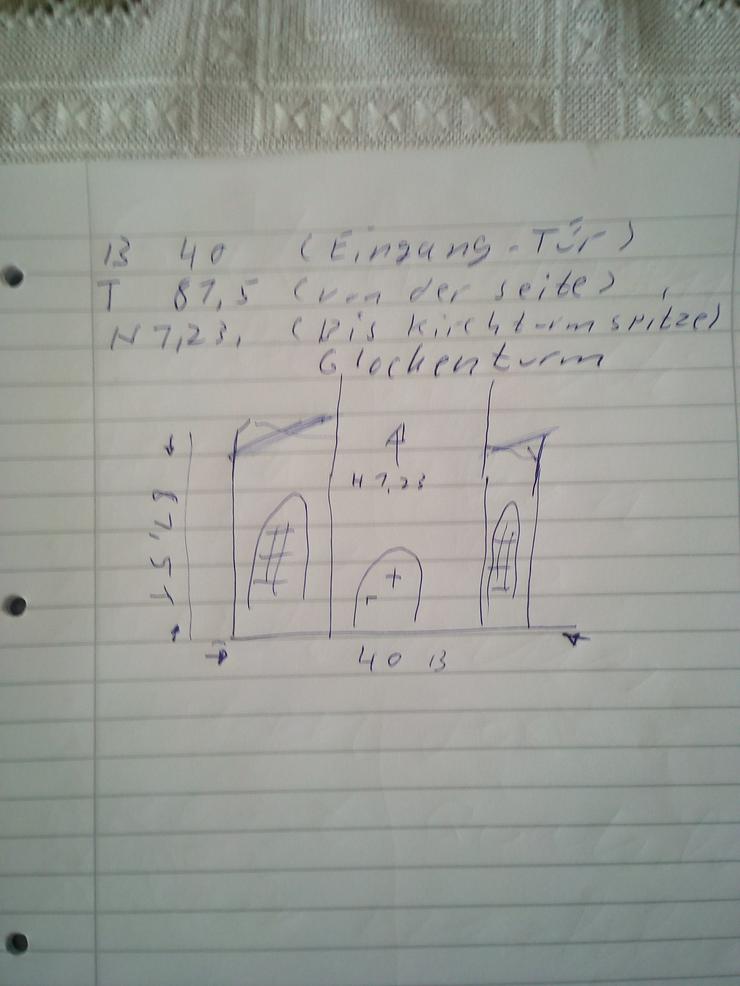 B 40 (Eingang-Tür)
T 87,5 (von der seite),
H 7,23, (Bis kirchturmspitze)
Glockenturm
H 7,23
87,5 T
40 B